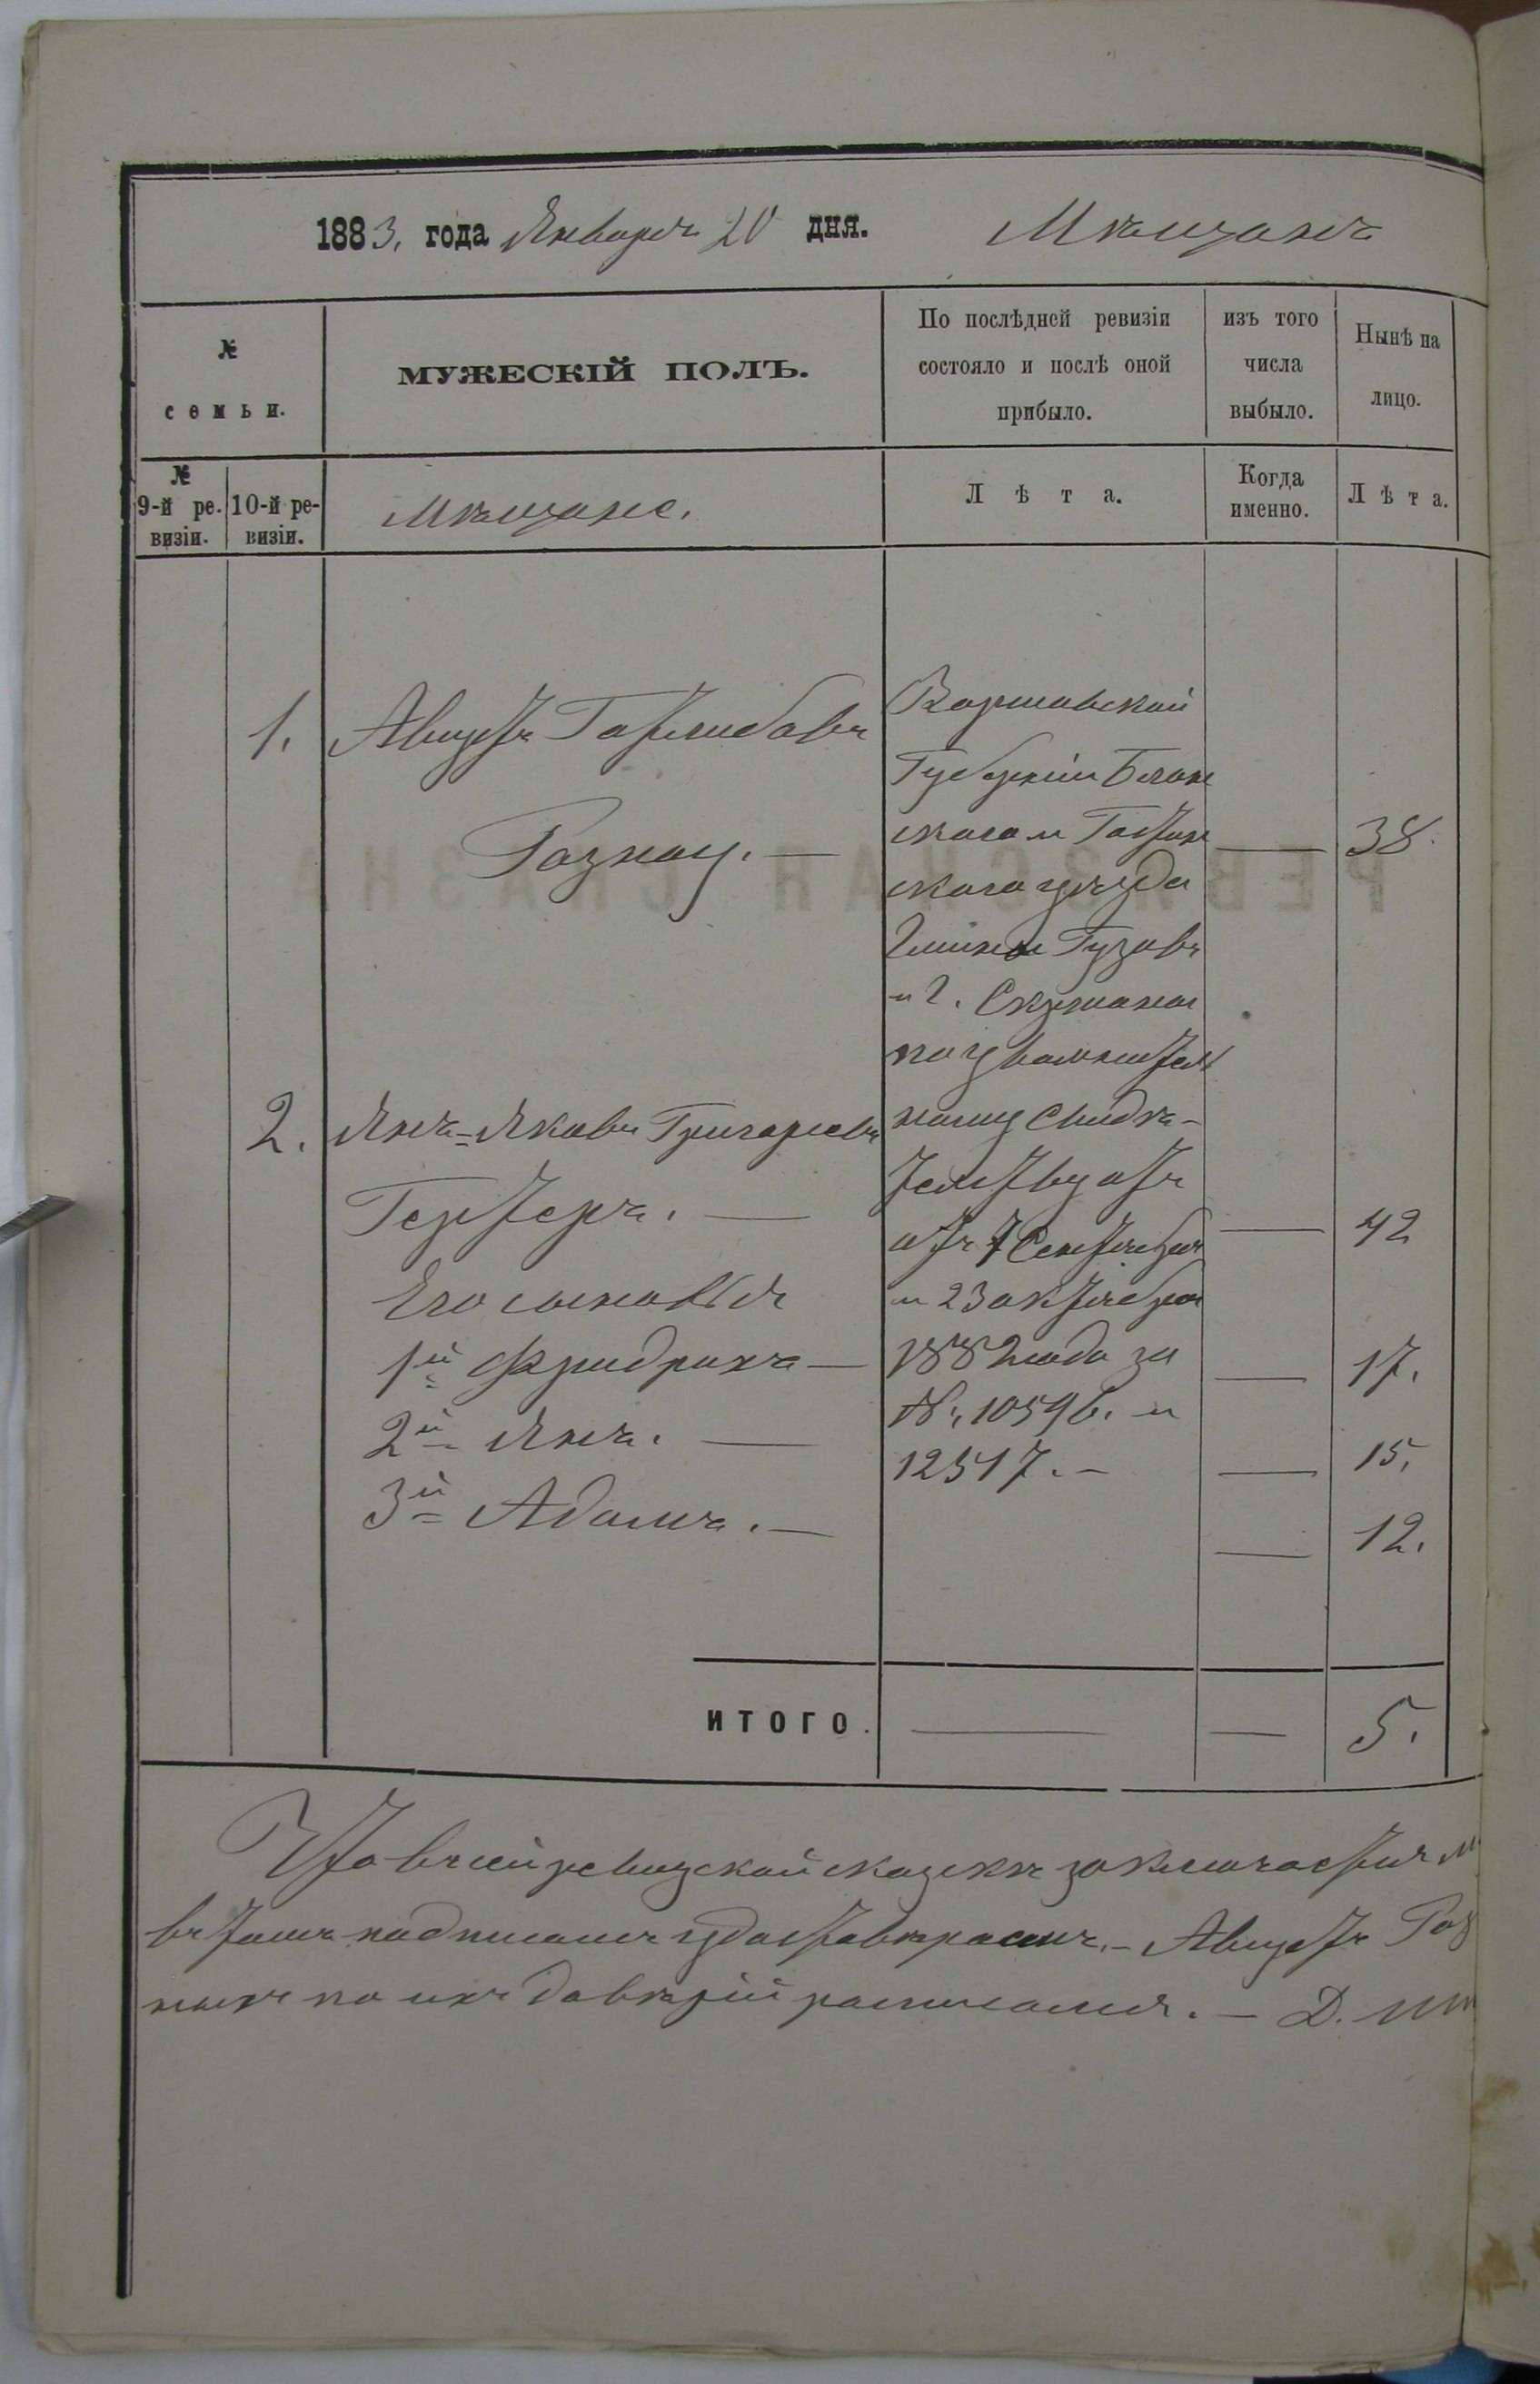 1883, года Января 20 дня. Мѣщанъ
№ семьи.
МУЖЕСКІЙ ПОЛЪ.
По послѣдней ревизіи состояло и послѣ оной прибыло.
изъ того числа выбыло.
Нынѣ на лицо.
№ 9-й ревизіи.
10-й ревизіи.
Мѣщане.
Л ѣ т а.
Когда именно.
Л ѣ т а.
1. Августъ Готлибовъ
Рознау. — — 38.
Варшавской
Губерніи Блон
скаго и Гостын
скаго уѣзда
Гминъ Гузовъ
и г.
по увольнитель
ному свидѣ-
тельству отъ
отъ 7 Сентября
и 23 октября
1882 года за
№, 10596. и
12517. –
2. Янъ-Яковъ Григорьевъ
Гертеръ. — — 42
Его сыновья
1й Фридрихъ — — 17.
2й Янъ. — — 15,
3й Адамъ. — — 12.
ИТОГО. — — 5.
Что въ сей ревизской сказкѣ заключается
въ томъ подписомъ удостовѣряемъ. – Августъ Роз
по ихъ довѣрій росписался. – Д.
РЕВИЗСКАЯ СКАЗКА